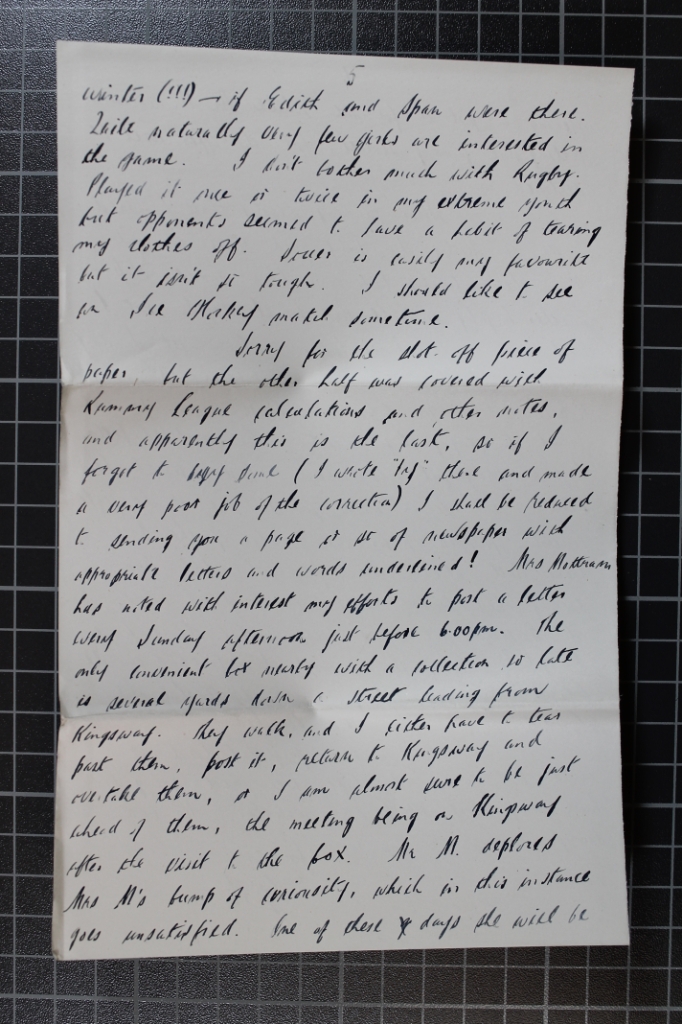 5
winter (!!!) — if Edith and Span were there.
Quite naturally very few girls are interested in
the game. I don't bother much with Rugby.
Played it once or twice in my extreme youth
but opponents seemed to have a habit of tearing
my clothes off. Soccer is easily my favourite
but it isn't so tough. I should like to see
an Ice Hockey match sometime.
Sorry for the slot-off piece of
paper, but the other half was covered with
Rummy League calculations and other notes,
and apparently this is the last, so if I
forget to buy some (I wrote "try" there and made
a very poor job of the correction) I shall be reduced
to sending you a page or so of newspaper with
appropriate letters and words underlined! Mrs Mottram
has noted with interest my efforts to post a letter
every Sunday afternoon just before 6.00pm. The
only convenient box nearby with a collection so late
is several yards down a street leading from
Kingsway. They walk, and I either have to tear
past them, post it, return to Kingsway and
overtake them, or I am almost sure to be just
ahead of them, the meeting being on Kingsway
after the visit to the box. Mr M. deplores
Mrs M's bump of curiosity, which in this instance
goes unsatisfied. One of these days she will be